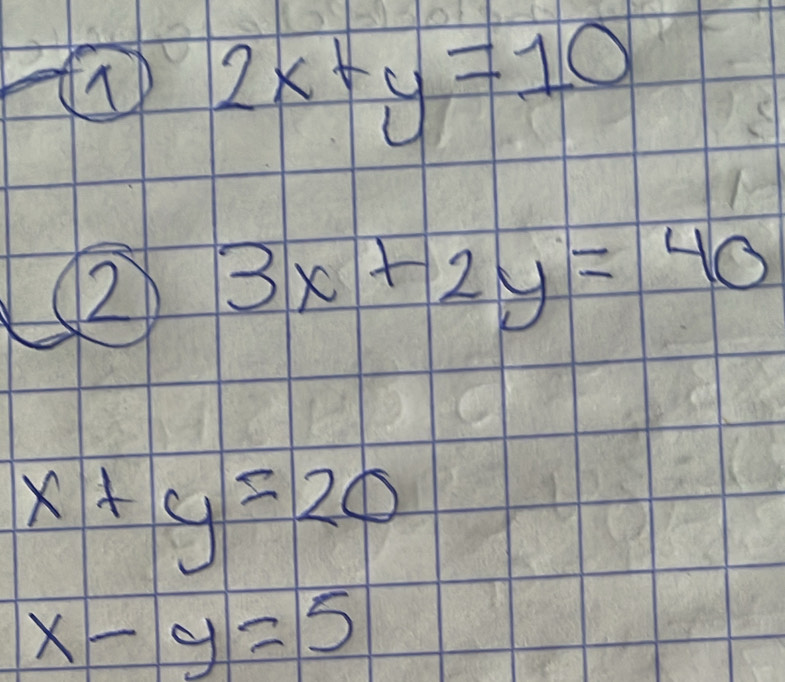 ① 2x+y=10
② 3x+2y=40
x+y=20
x-y=5